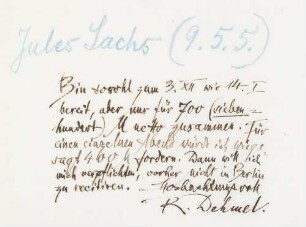 Jules Sachs (9.5.5.)
Bin sowohl zum 3. XII wie 14. I
bereit, aber nur für 700 (sieben=
hundert) M netto zusammen. Für
einen einzelnen Abend würde ich wie ge-
sagt 400 M fordern. Dann will ich
mich verpflichten, vorher nicht in Berlin
zu recitiren. Hochachtungsvoll
R. Dehmel.